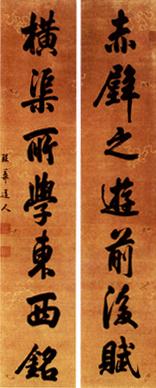 赤壁之遊前後賦
橫渠所學東西銘
道人